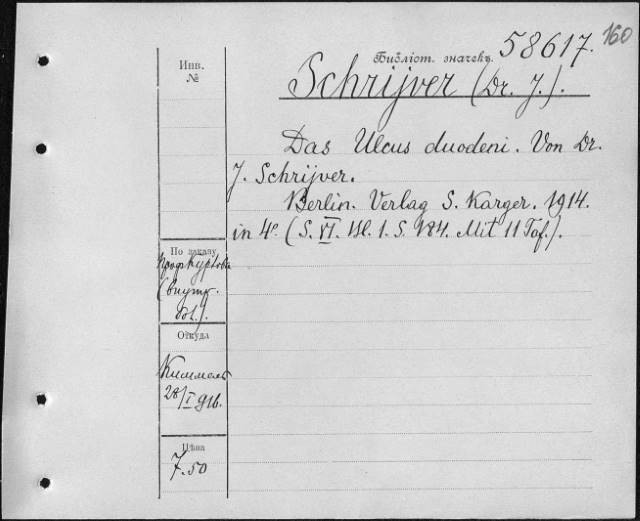 160
Библіот. значекъ 58617.
Инв.
№
Schrijver (Dr. J.).
Das Ulcus duodeni. Von Dr.
J. Schrijver.
Berlin. Verlag S. Karger. 1914.
in 4º. (S. VI. Bl. 1. S. 184. Mit 11 Taf.).
По заказу
(внутр.
бол.).
Откуда
Киммель
28/I 916.
Цѣна
7.50